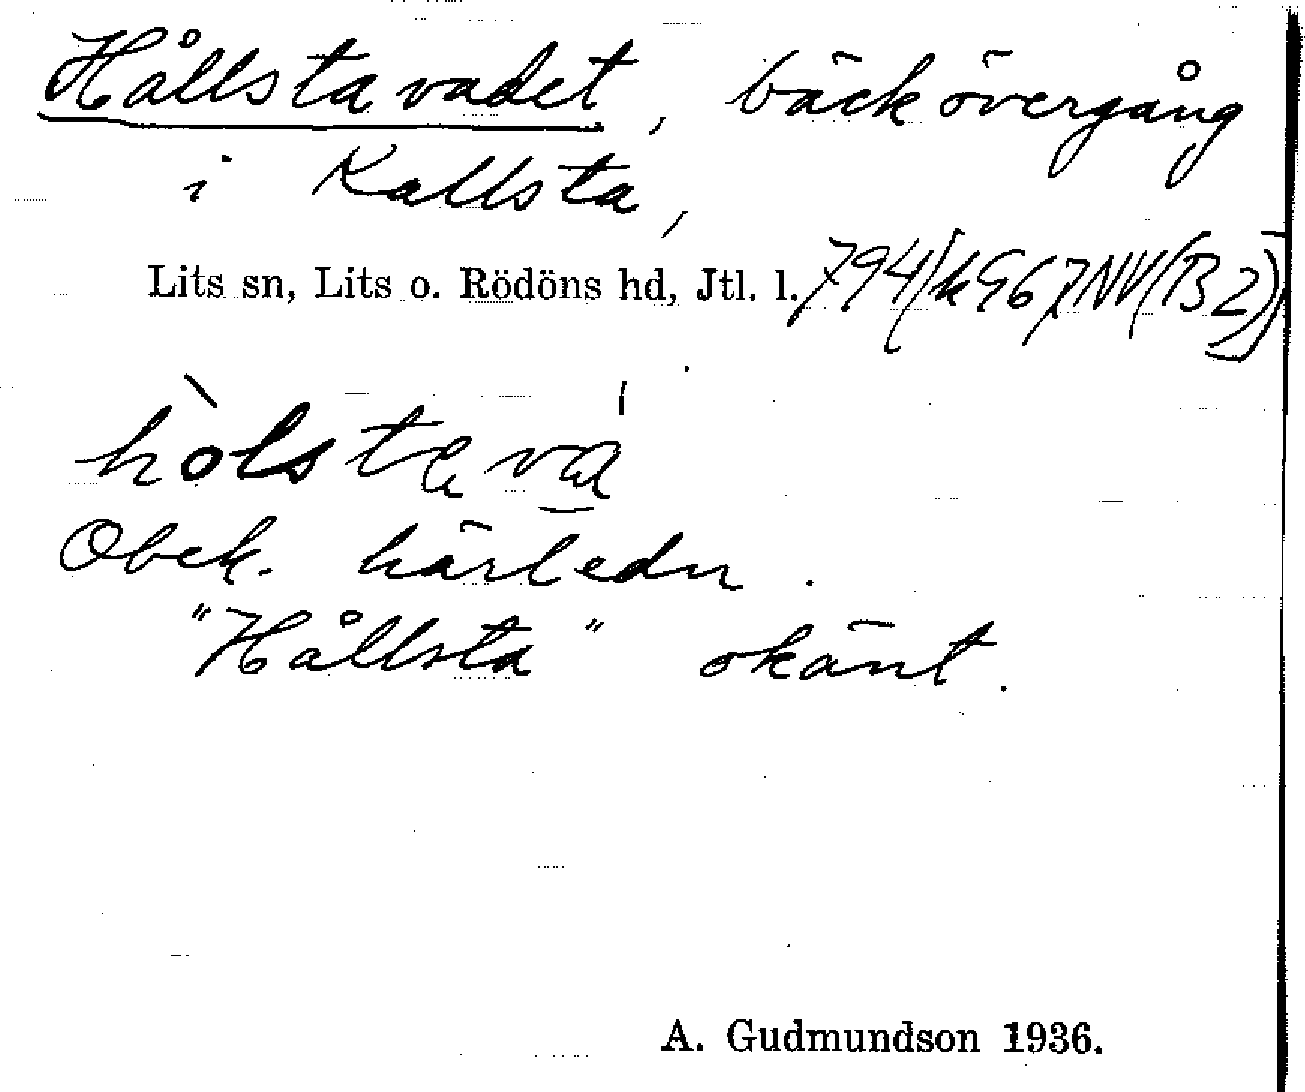 Hållstavadet, bäckövergång
i Kallsta,
Lits sn, Lits o. Rödöns hd, Jtl. l.
hòlstava
Obek. härledn.
"Hållsta" okänt.
A. Gudmundson 1936.